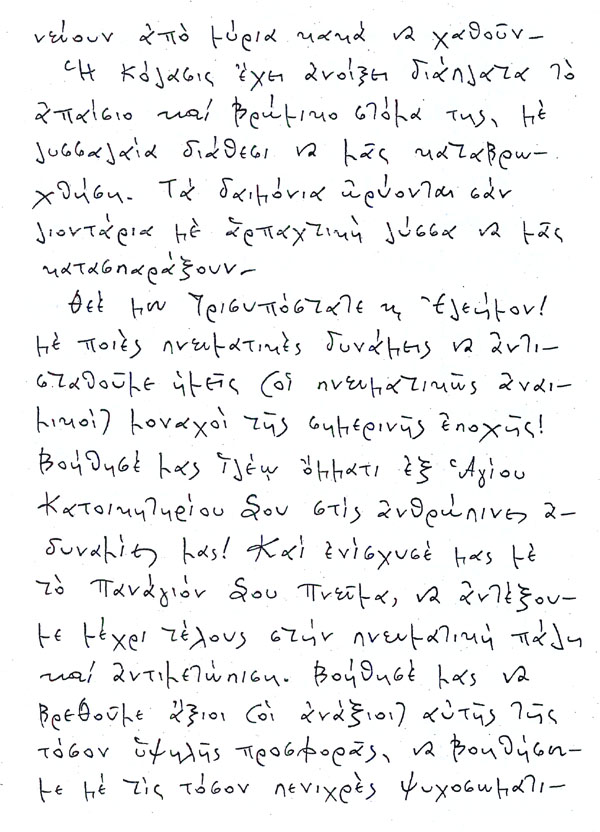 νεύουν ἀπὸ μύρια κακά νὰ χαθοῦν–
Ἡ κόλασις ἔχει ἀνοίξει διάπλατα τὸ
ἀπαίσιο καί βρώμικο στόμα της, μὲ
λυσσαλαία διάθεσι νὰ μᾶς καταβρω–
χθήσῃ. Τὰ δαιμόνια ὠρύονται σὰν
λιοντάρια μὲ ἁρπαχτικὴ λύσσα νὰ μᾶς
κατασπαράξουν–
Θεέ μου Τρισυπόστατε κ Ἐλεήμον!
μὲ ποιὲς πνευματικὲς δυνάμεις νὰ ἀντι–
σταθοῦμε ἡμεῖς (οἱ πνευματικῶς ἀναι–
μικοὶ) μοναχοὶ τῆς σημερινῆς ἐποχῆς!
Βοήθησέ μας ἵλέῳ ὄμματι ἐξ Ἁγίου
Κατοικητηρίου Σου στὶς ἀνθρώπινες ἀ–
δυναμίες μας! Καὶ ἐνίσχυσέ μας μὲ
τὸ Πανάγιόν Σου Πνεῦμα, νὰ ἀντέξου–
με μέχρι τέλους στήν πνευματική πάλη
καί ἀντιμετώπιση. Βοήθησέ μας νὰ
βρεθοῦμε ἄξιοι (οἱ ἀνάξιοι) αὐτῆς τῆς
τόσον ὑψηλῆς προσφορᾶς, νὰ βοηθήσω–
με μέ τὶς τόσον πενιχρὲς ψυχοσωματι–